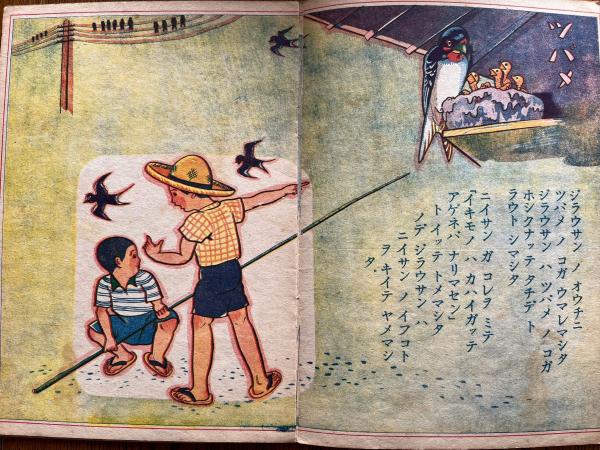 ツバメ
ジラウサン ノ オウチニ
ツバメ ノ コガ ウマレマシタ
ジラウサン ハ ツバメ ノ コガ
ホシクナッテ タチデ ト
ラウト シマシタ
ニイサン ガ コレヲ ミテ
「イキモノ ハ カハイガッテ
アゲネバ ナリマセン」
ト イッテ トメマシタ
ニイサン ノ イフコト
ヲ キイテ ヤメマシ
ノデ ジラウサン ハ
タ。